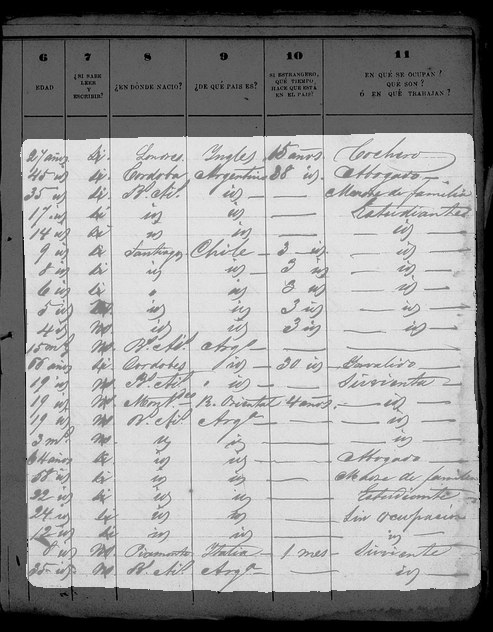 6 7 8 9 10 11
EDAD ¿SI SABE LEER Y ESCRIBIR? ¿EN DÓNDE NACIÓ? ¿DE QUÉ PAIS ES? SI ESTRANGERO, QUE TIEMPO HACE QUE ESTÁ EN EL PAIS? EN QUÉ SE OCUPAN? QUÉ SON? Ó EN QUÉ TRABAJAN?
27 años Si Londres Ingles 15 años Cochero
45 id Si Cordoba Argentino 28 id Abogado
35 id Si Bs As id — Madre de familia
17 id Si id id — Estudiante
14 id Si id id — id
9 id Si Santiago Chile 3 id — id
8 id Si id id 3 id — id
6 id Si id 3 id — id
5 id id id 3 id — id
4 id No id id 3 id — id
15 ms No Bs As Arga —
años Si Cordobes id 30 id
19 id No Bs As id — Sirvienta
19 id No B. Oriental 4 años — id
19 id No Bs As Arga — id
3 ms No id id — id
64 años Si id id — Abogado
58 id Si id id — Madre de familia
22 id Si id id — Estudiante
24 id Si id id — Sin ocupacion
12 id Si id id — id
id No Piamonte Italia 1 mes Sirviente
25 id No Bs As Arga — id